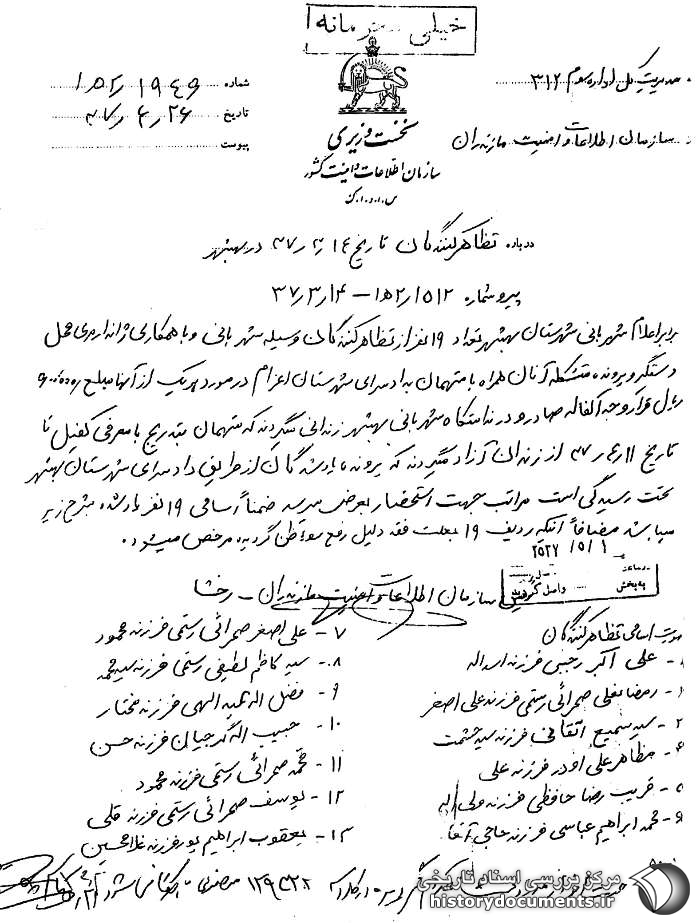 خیلی محرمانه
مدیریت کل اداره سوم ۳۱۲
شماره ۱۹۴۹/۱۵۲
تاریخ ۳۷/۴/۲۶
پیوست
سازمان اطلاعات و امنیت مازندران
نخست وزیری
سازمان اطلاعات و امنیت کشور
س.ا.و.ا.ک
درباره تظاهرکنندگان تاریخ ۳۷/۳/۱۴ در بهشهر
پیرو شماره ۱۵۱۲/۱۵۲ – ۳۷/۳/۱۴
برابر اعلام شهربانی شهرستان بهشهر تعداد ۱۹ نفر از تظاهرکنندگان وسیله شهربانی و با همکاری ژاندارمری محل
دستگیر و پرونده متشکله آنان همراه با متهمان به دادسرای شهرستان اعزام در مورد هر یک از آنها مبلغ
ریال قرار وجه الکفاله صادر و در ندامتگاه شهربانی بهشهر زندانی میگردند که متهمان بتدریج با معرفی کفیل تا
تاریخ ۳۷/۴/۱۱ از زندان آزاد میگردند که پرونده یادشدگان از طریق دادسرای شهرستان بهشهر
تحت رسیدگی است مراتب جهت استحضار بعرض میرسد ضمناً اسامی ۱۹ نفر یادشده بشرح زیر
میباشد مضافاً اینکه ردیف ۱۹ بعلت فقد دلیل رفع سوءظن گردیده مرخص میشود.
۲۵۳۷/۵/۱
سازمان اطلاعات و امنیت مازندران – رخشا
به بخش
واصل گردید
صورت اسامی تظاهرکنندگان
علی اکبر رجبی فرزند اسداله
رمضانعلی صحرائی رستمی فرزند علی اصغر
سید سمیع آتقانی فرزند سید حشمت
۴- مظاهر علی اودر فرزند علی
۵- قریب رضا حافظی فرزند ولی اله
محمد ابراهیم عباسی فرزند حاجی آقا
۷- علی اصغر صحرائی رستمی فرزند محمود
۸- سید کاظم لطیفی رستمی فرزند سید محمد
۹- فضل اله عبد الهی فرزند مختار
۱۰- حبیب اله گرجیان فرزند حسن
۱۱- محمد صحرائی رستمی فرزند محمود
۱۲- یوسف صحرائی رستمی فرزند قلی
۱۳- یعقوب ابراهیم پور فرزند غلامحسین
مرکز بررسی اسناد تاریخی
historydocuments.ir